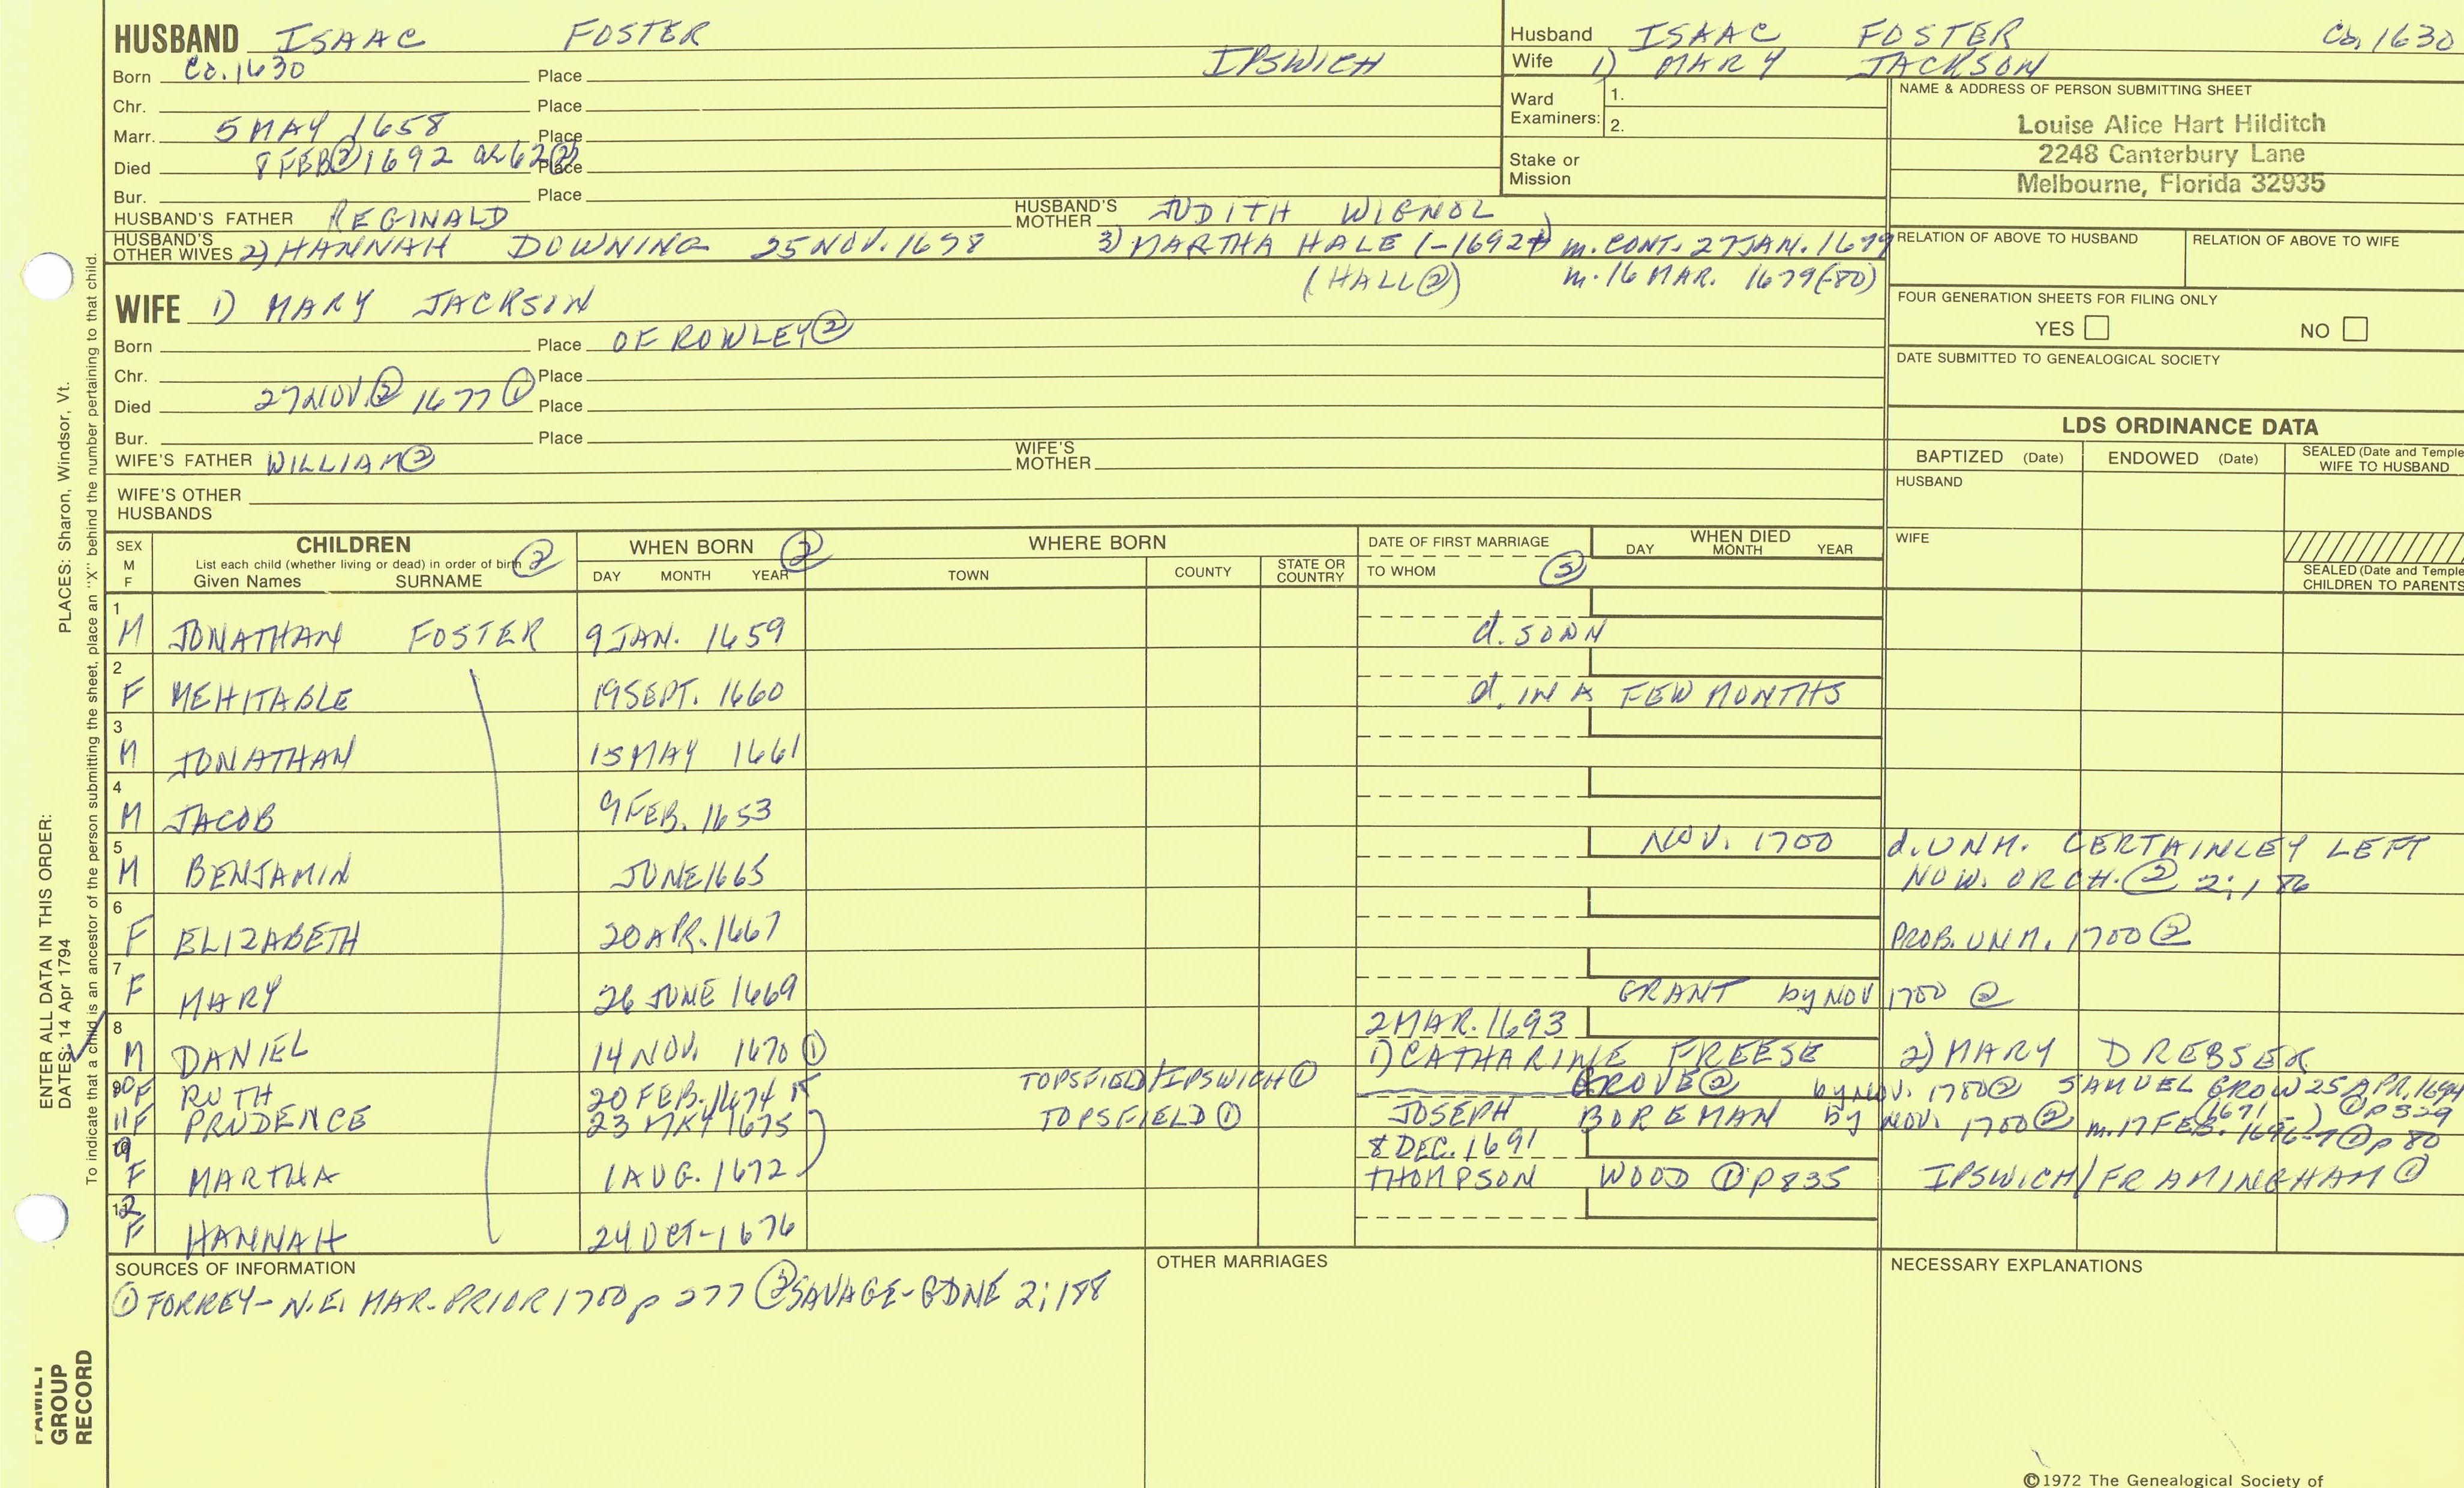 HUSBAND ISAAC FOSTER
Born Ca. 1630 Place IPSWICH
Chr. Place
Marr. 5 MAY 1658 Place
Died 8 FEB② 1692 ae 62② Place
Bur. Place
HUSBAND'S FATHER REGINALD HUSBAND'S MOTHER JUDITH WIGNOL
HUSBAND'S OTHER WIVES 2) HANNAH DOWNING 25 NOV. 1678 3) MARTHA HALE (-1692+) m. CONT. 27 JAN. 1679
(HALL②) m. 16 MAR. 1679(-80)
WIFE 1) MARY JACKSON
Born Place OF ROWLEY②
Chr. Place
Died 27 NOV.② 1677① Place
Bur. Place
WIFE'S FATHER WILLIAM② WIFE'S MOTHER
WIFE'S OTHER HUSBANDS
Husband ISAAC FOSTER Ca. 1630
Wife 1) MARY JACKSON
Ward Examiners: 1.
2.
Stake or Mission
NAME & ADDRESS OF PERSON SUBMITTING SHEET
Louise Alice Hart Hilditch
2248 Canterbury Lane
Melbourne, Florida 32935
RELATION OF ABOVE TO HUSBAND RELATION OF ABOVE TO WIFE
FOUR GENERATION SHEETS FOR FILING ONLY
YES NO
DATE SUBMITTED TO GENEALOGICAL SOCIETY
LDS ORDINANCE DATA
BAPTIZED (Date) ENDOWED (Date) SEALED (Date and Temple WIFE TO HUSBAND
HUSBAND
WIFE
SEALED (Date and Temple CHILDREN TO PARENTS
SEX M F CHILDREN ②
List each child (whether living or dead) in order of birth
Given Names SURNAME
WHEN BORN ②
DAY MONTH YEAR
WHERE BORN
TOWN COUNTY STATE OR COUNTRY
DATE OF FIRST MARRIAGE
TO WHOM ②
WHEN DIED
DAY MONTH YEAR
1 M JONATHAN FOSTER 9 JAN. 1659 d. SOON
2 F MEHITABLE 19 SEPT. 1660 d. IN A FEW MONTHS
3 M JONATHAN 15 MAY 1661
4 M JACOB 9 FEB. 1653
5 M BENJAMIN JUNE 1665 NOV. 1700 d. UNM. CERTAINLEY LEFT
NO W. OR CH. ② 2;186
6 F ELIZABETH 20 APR. 1667 PROB. UNM. 1700②
7 F MARY 26 JUNE 1669 GRANT by NOV 1700②
8 M DANIEL 14 NOV. 1670① 2 MAR. 1693
1) CATHARINE FREESE 2) MARY DREBSER
10 F RUTH 20 FEB. 1674 TOPSFIELD/IPSWICH① GROVE② by NOV. 1700② SAMUEL GROW 25 APR. 1694
11 F PRUDENCE 23 MAY 1675 TOPSFIELD① JOSEPH BOREMAN by NOV. 1700② (1671- ) ①p329
m. 17 FEB. 1696-7①p 80
9 F MARTHA 1 AUG. 1672 8 DEC. 1691
THOMPSON WOOD ①p835 IPSWICH/FRAMINGHAM①
12 F HANNAH 24 OCT-1676
SOURCES OF INFORMATION
① TORREY-N.E. MAR-PRIOR 1700 p 277 ② SAVAGE-GDNE 2;188
OTHER MARRIAGES
NECESSARY EXPLANATIONS
©1972 The Genealogical Society of
PLACES: Sharon, Windsor, Vt.
ENTER ALL DATA IN THIS ORDER:
DATES: 14 Apr 1794
To indicate that a child is an ancestor of the person submitting the sheet, place an "X" behind the number pertaining to that child.
FAMILY GROUP RECORD